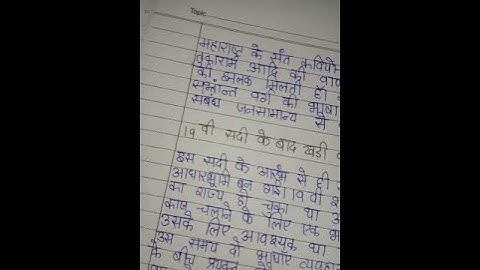 Topic
महाराष्ट्र के संत कवियो
तुकाराम आदि की
की झलक मिलती है
सम्भ्रान्त वर्ग की भाषा
संबंध जनसामान्य से
19 वी सदी के बाद खडी
इस सदी के आरंभ से ही
आधारभूमि बन गया 19 वी
का राज्य हो चुका था
काज चलाने के लिए एक
उसके लिए आवश्यक था
उस समय के
के बीच